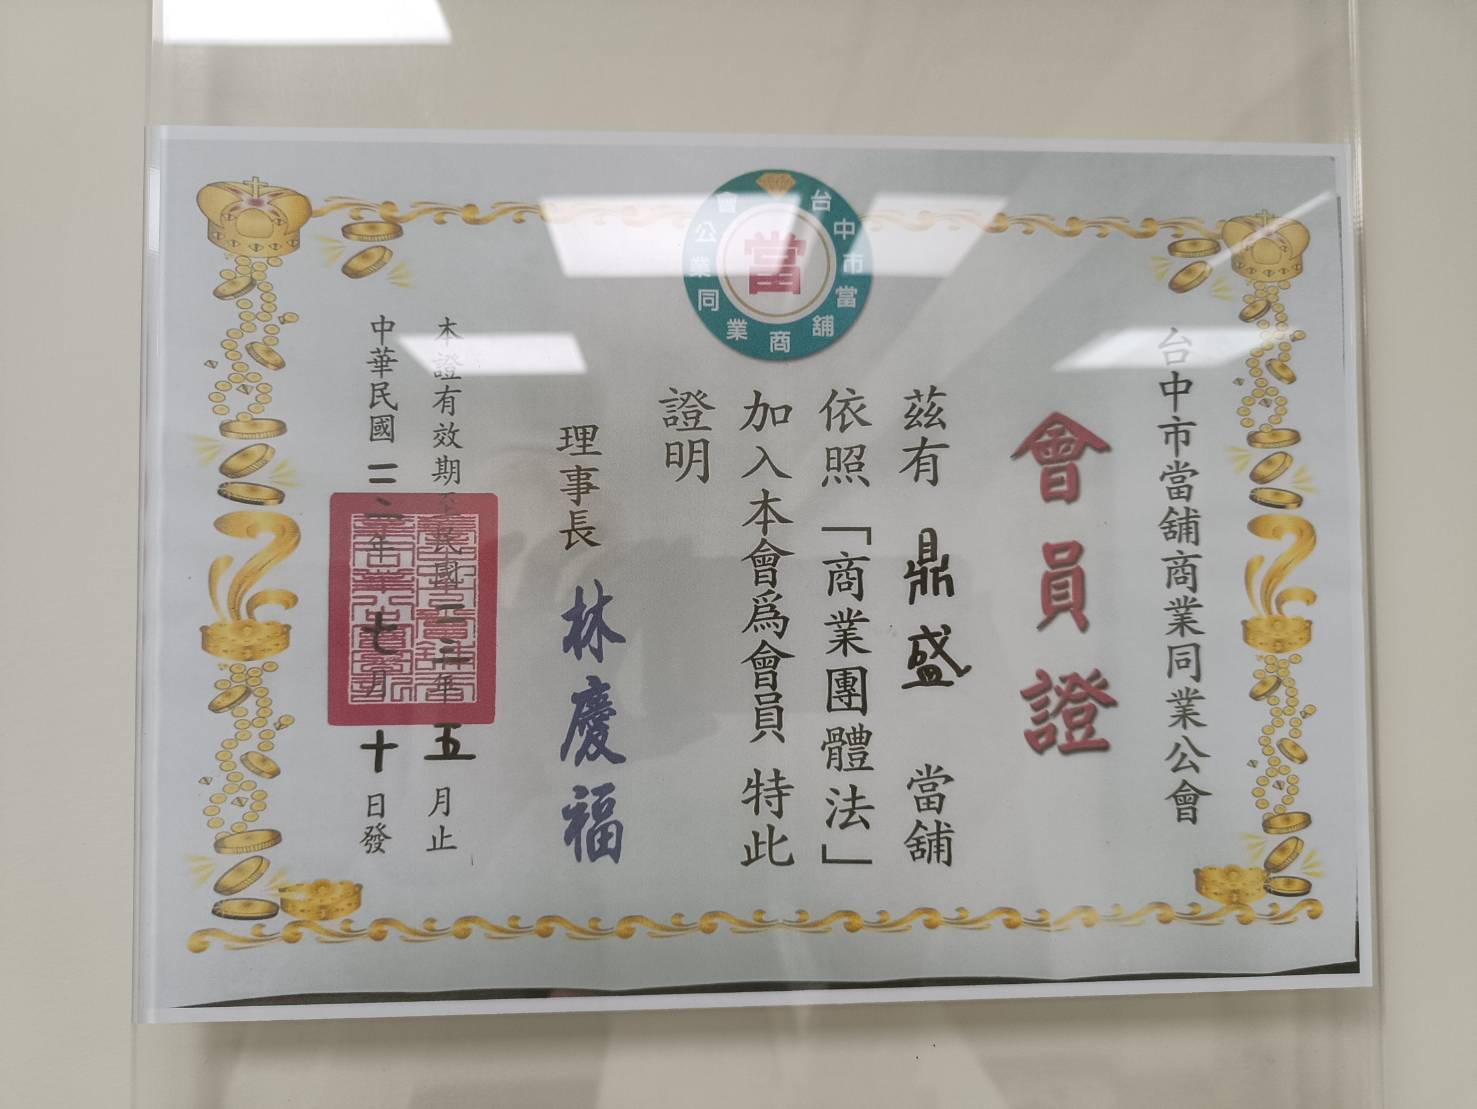 台中市當舖商業同業公會
當
台中市當舖商業同業公會
會員證
茲有 鼎盛 當舖
依照「商業團體法」
加入本會為會員 特此
證明
理事長 林慶福
本證有效期至民國一一三年五月止
中華民國 年七月十日發